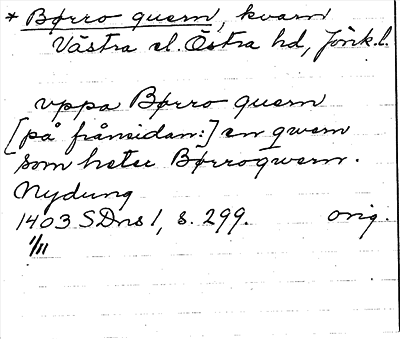 * Børro quern, kvarn
Västra el. Östra hd, Jönk.l.
vppa Børro quern
[på frånsidan:] en qwern
som heter Børroqwern.
Nydung
1403 SDns 1, s. 299. orig.
1/11